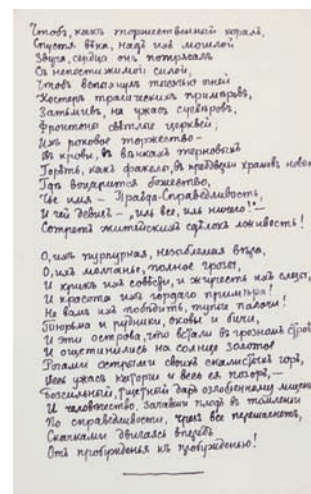 Чтобъ, какъ торжественный хоралъ,
Спустя вѣка, надъ ихъ могилой
Звуча, сердца онъ потрясалъ
Съ непостижимой силой,
Чтобъ вспыхнулъ тысячью огней
Костеръ трагическихъ примѣровъ,
Затмивъ, на ужасъ суевѣровъ,
Фронтоны свѣтлые церквей;
Ихъ роковое торжество –
Въ крови, въ вѣнкахъ терновыхъ
Горѣть, какъ факелы, въ преддверьи храмовъ
Гдѣ воцарится божество,
Чье имя – Правда-Справедливость,
И чей девизъ – „иль все, иль ничего!“ –
Сотретъ житейскихъ сдѣлокъ лживость!
О, ихъ пурпурная, незыблемая вѣра,
О, ихъ молчанье, полное грозы,
И крикъ ихъ совѣсти, и ихъ слезы,
И красота ихъ гордаго примѣра!
Не вамъ ихъ побѣдить, тупые палачи!
Тюрьма и рудники, оковы и бичи,
И эти острова, что встали въ грозномъ
И ощетинились на солнце золотое
Рогами острыми своихъ скалистыхъ горъ,
Весь ужасъ каторги и весь ея позоръ, –
Безсильный, тщетный даръ озлобленному
И человѣчество, въ томленьи
По справедливости, чрезъ все перешагнетъ,
Скачками двигаясь впередъ
Отъ пробужденья къ пробужденью!